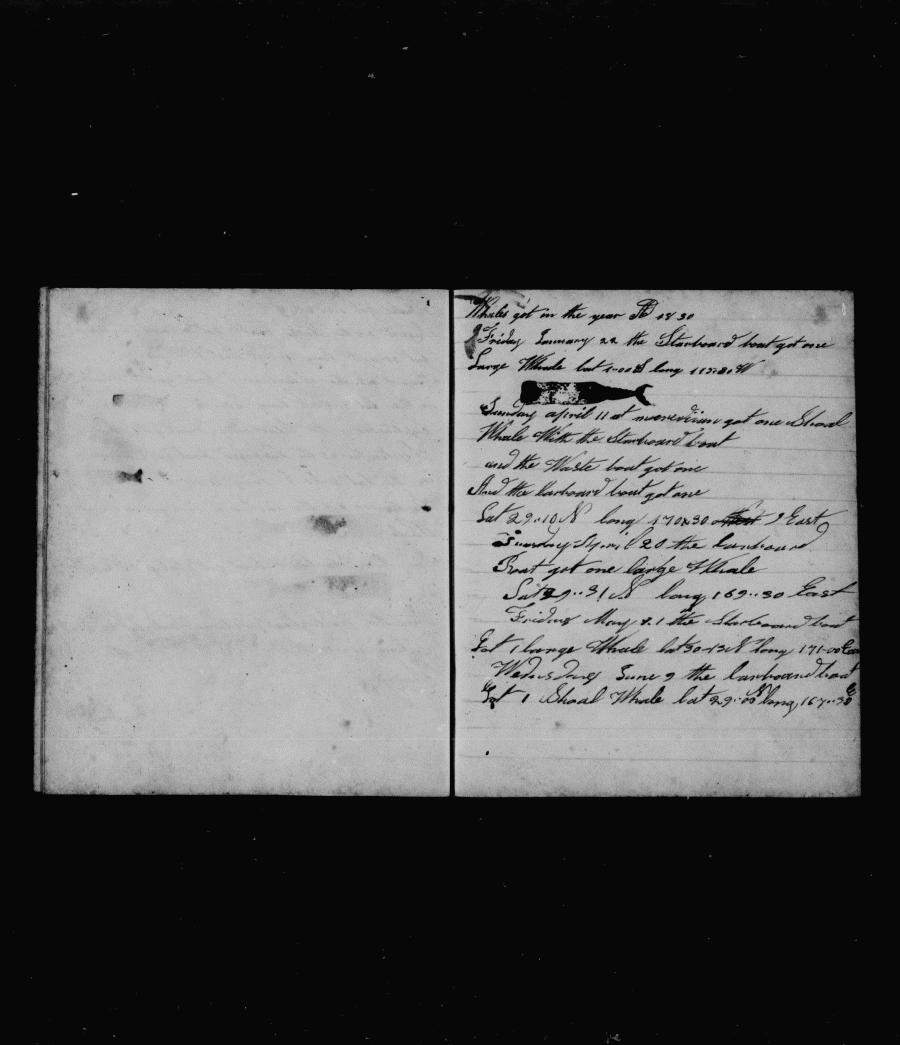 Whales got in the year AD 1830
Friday January 22 the Starboard boat got one
Large Whale lat 1-00 S long 117-20 W
Sunday april 11 at meredian got one Shoal
Whale With the Starboard boat
and the Waste boat got one
And the larboard boat got one
Lat 29-10 N long 170-30 East
Tuesday April 20 the larboard
Boat got one large Whale
Lat 29-31 N long 169-30 East
Friday May 21 the Starboard boat
Got 1 large Whale lat 30-13 N long 171-00 Eas
Wednsday June 9 the larboard boat
Got 1 Shoal Whale lat 29-00 N long 167-30 E